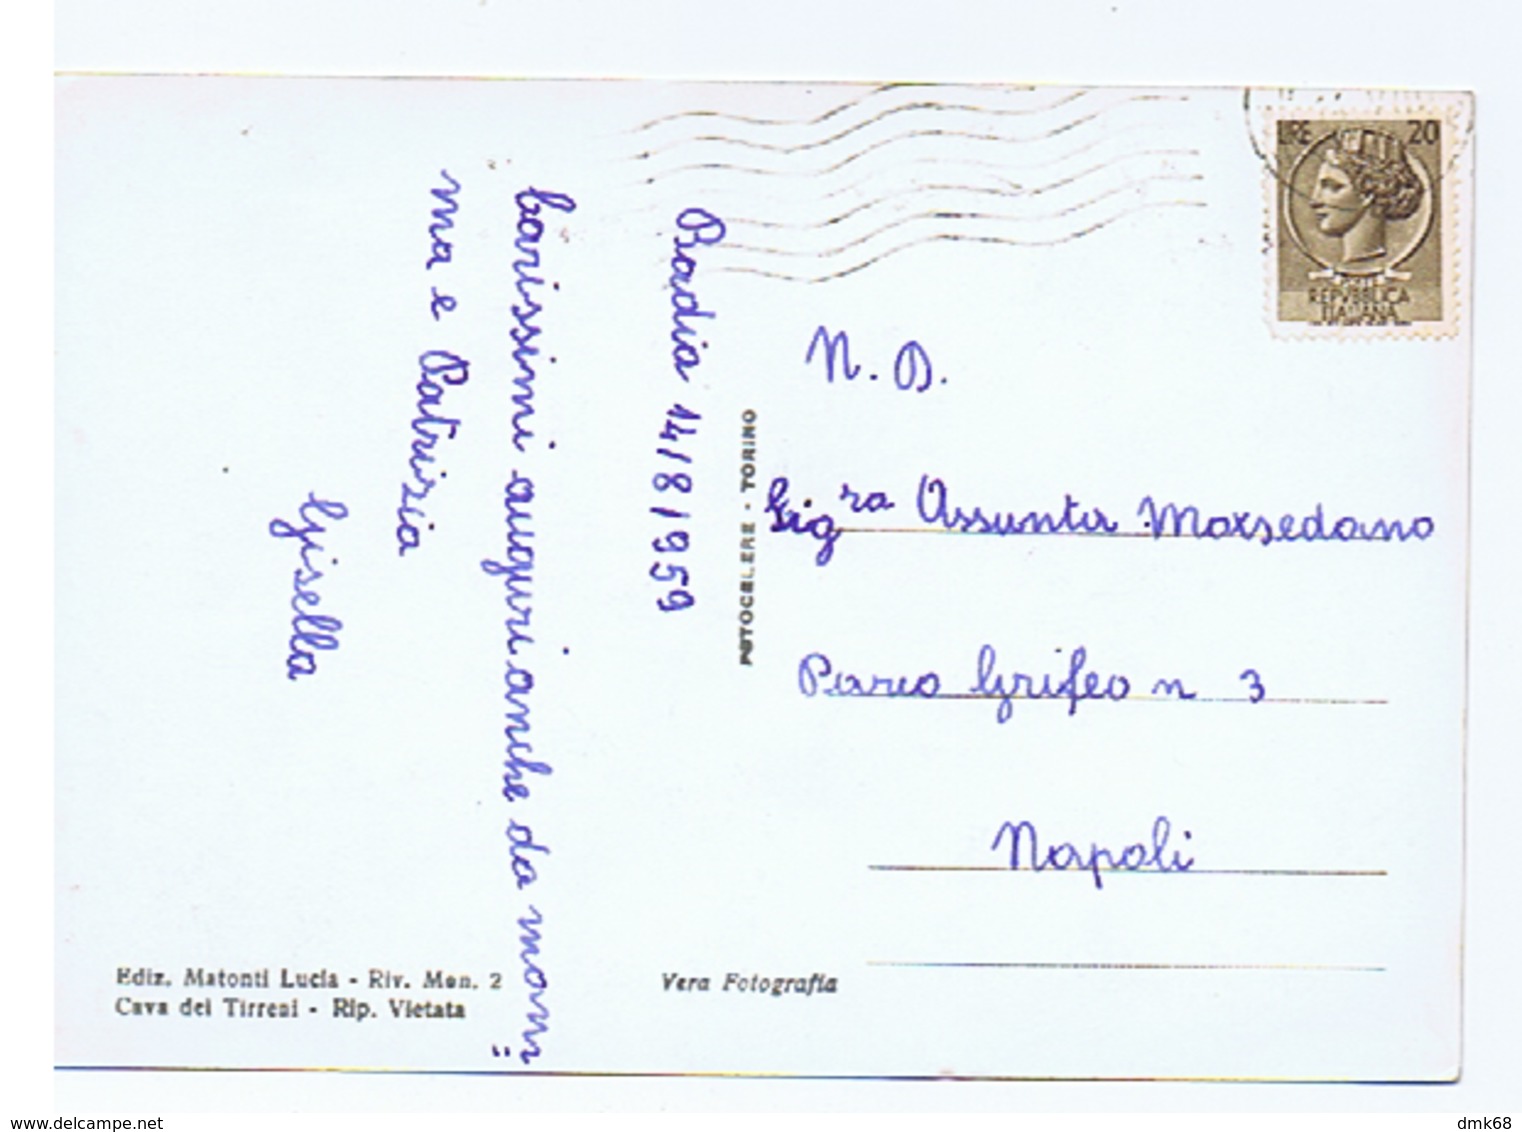 LIRE 20
REPVBBLICA
ITALIANA
Badia 14/8/959
Carissimi auguri anche da mam=
ma e Patrizia
Gisella
N. D.
Sig.ra Assunta Marsedano
Parco Grifeo n 3
Napoli
FOTOCELERE - TORINO
Ediz. Matonti Lucia - Riv. Mon. 2
Cava dei Tirreni - Rip. Vietata
Vera Fotografia
www.delcampe.net
dmk68